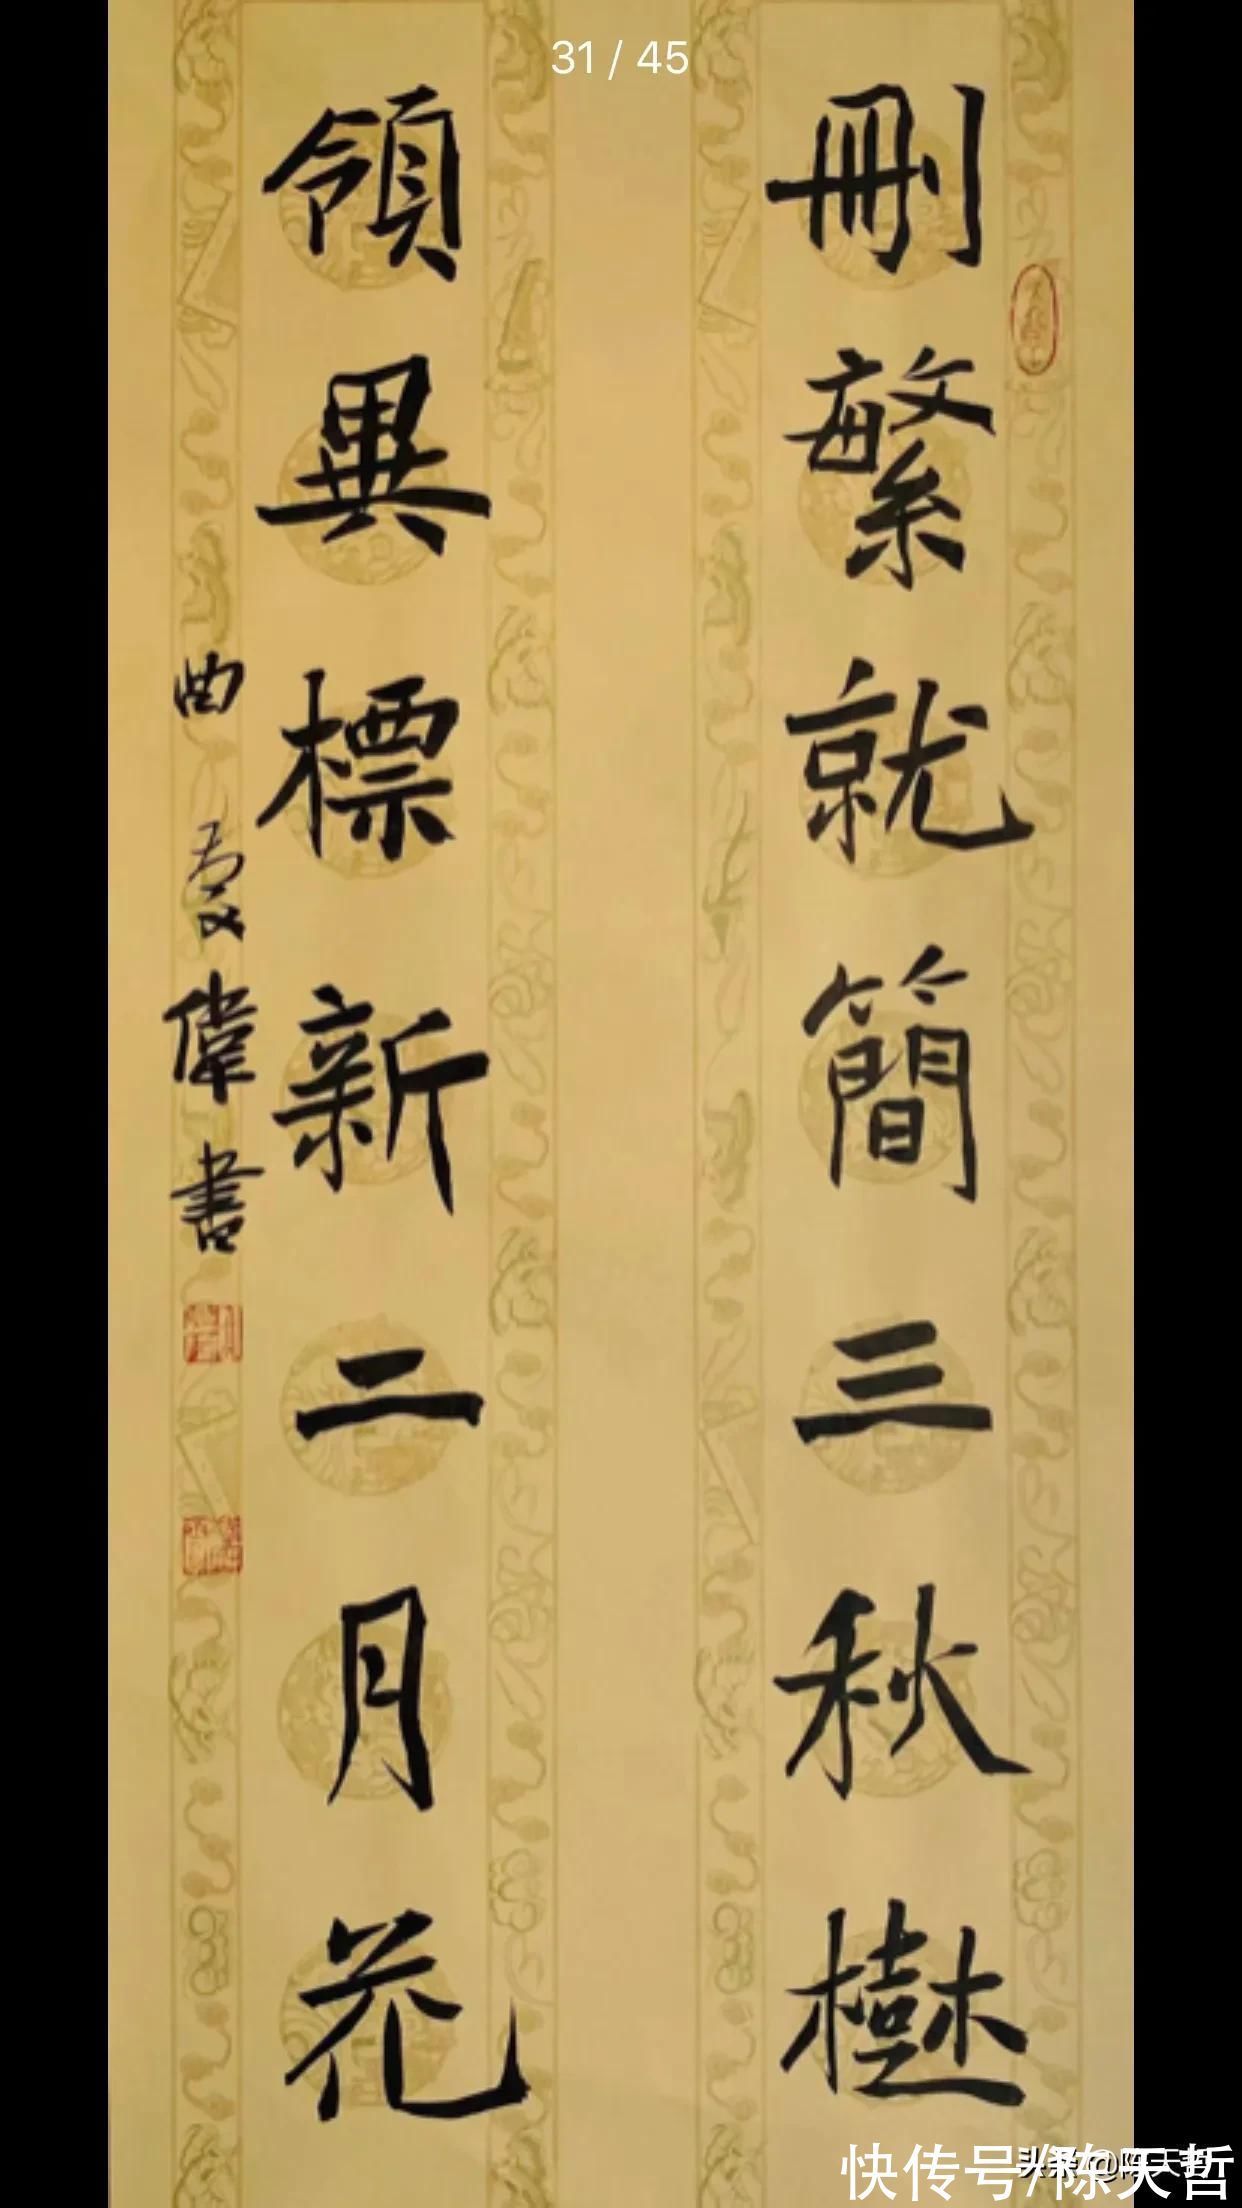 31 / 45
刪繁就簡三秋樹
領異標新二月花
曲 偉書
快传号/陈天哲